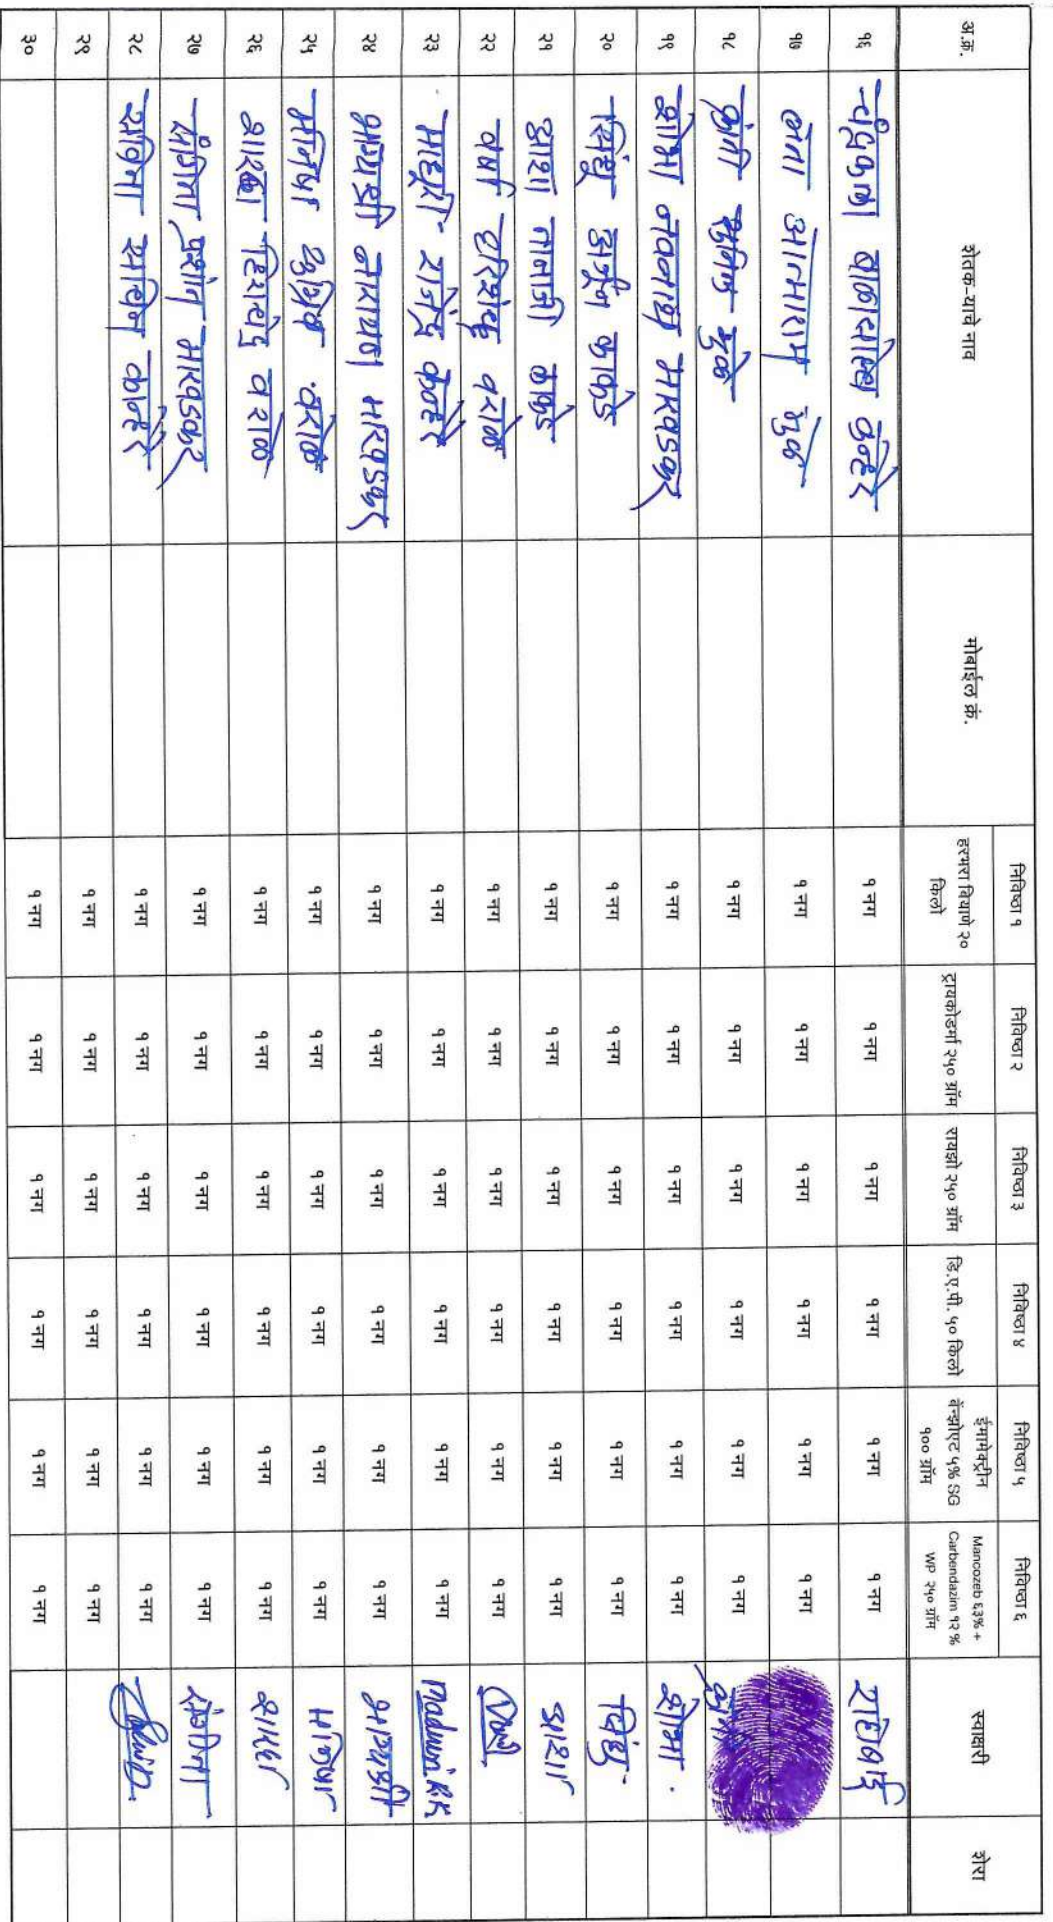 अ.क्र. शेतक-याचे नाव मोबाईल क्रं. निविष्ठा १ निविष्ठा २ निविष्ठा ३ निविष्ठा ४ निविष्ठा ५ निविष्ठा ६ स्वाक्षरी शेरा
हरभरा बियाणे २० किलो ट्रायकोडर्मा २५० ग्रॅम रायझो २५० ग्रॅम डि.ए.पी. ५० किलो ईमामेक्ट्रीन बेंन्झोएट ५% SG १०० ग्रॅम Mancozeb ६३% + Carbendazim १२% WP २५० ग्रॅम
१६ चंद्रकला बाळासाहेब कन्हेरे १ नग १ नग १ नग १ नग १ नग १ नग
१७ लता आत्माराम शेळके १ नग १ नग १ नग १ नग १ नग १ नग
१८ सुनिल १ नग १ नग १ नग १ नग १ नग १ नग
१९ शोभा नवनाथ भारवडकर १ नग १ नग १ नग १ नग १ नग १ नग शोभा.
२० सिंधु अर्जुन काकडे १ नग १ नग १ नग १ नग १ नग १ नग सिंधु
२१ आशा तानाजी काकडे १ नग १ नग १ नग १ नग १ नग १ नग आशा
२२ वर्षा हरिश्चंद्र वराळे १ नग १ नग १ नग १ नग १ नग १ नग
२३ माधुरी राजेंद्र कन्हेरे १ नग १ नग १ नग १ नग १ नग १ नग Madhuri R.K
२४ भाग्यश्री नारायण भारवडकर १ नग १ नग १ नग १ नग १ नग १ नग भाग्यश्री
२५ मनिषा वराळे १ नग १ नग १ नग १ नग १ नग १ नग मनिषा
२६ शारदा वराळे १ नग १ नग १ नग १ नग १ नग १ नग शारदा
२७ संगिता प्रशांत भारवडकर १ नग १ नग १ नग १ नग १ नग १ नग संगीता
२८ सविता सचिन कन्हेरे १ नग १ नग १ नग १ नग १ नग १ नग
२९ १ नग १ नग १ नग १ नग १ नग १ नग
३० १ नग १ नग १ नग १ नग १ नग १ नग